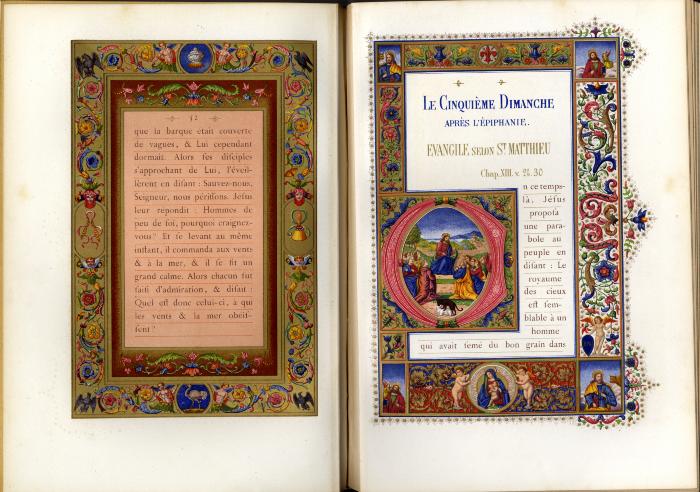 52
que la barque était couverte
de vagues, & Lui cependant
dormait. Alors ſes diſciples
s'approchant de Lui, l'éveil-
lèrent en diſant : Sauvez-nous,
Seigneur, nous périſſons. Jéſus
leur répondit : Hommes de
peu de foi, pourquoi craignez-
vous? Et ſe levant au même
inſtant, il commanda aux vents
& à la mer, & il ſe fit un
grand calme. Alors chacun fut
ſaiſi d'admiration, & diſait :
Quel eſt donc celui-ci, à qui
les vents & la mer obéiſ-
ſent?
LE CINQUIÈME DIMANCHE
APRÈS L'ÉPIPHANIE.
EVANGILE SELON ST. MATTHIEU
Chap. XIII. v. 24. 30
n ce temps-
là, Jéſus
propoſa
une para-
bole au
peuple en
diſant : Le
royaume
des cieux
eſt ſem-
blable à un
homme
qui avait ſemé du bon grain dans